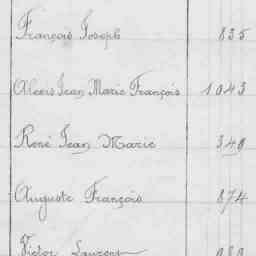 François Joseph 835
Alexis Jean Marie François 1043
René Jean Marie 340
Auguste François 874
Victor Laurent